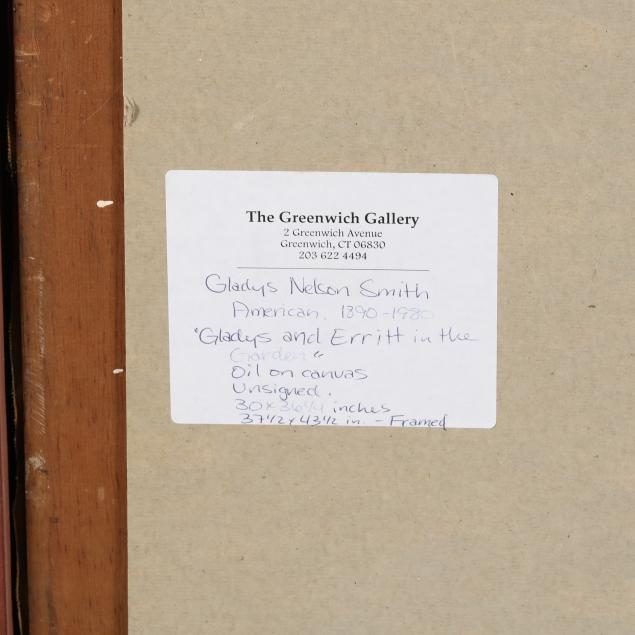 The Greenwich Gallery
2 Greenwich Avenue
Greenwich, CT 06830
203 622 4494
Gladys Nelson Smith
American, 1890-1980
"Gladys and Erritt in the
Garden"
Oil on canvas
Unsigned.
30 x 36 1/4 inches
37 1/2 x 43 1/2 in. - Framed